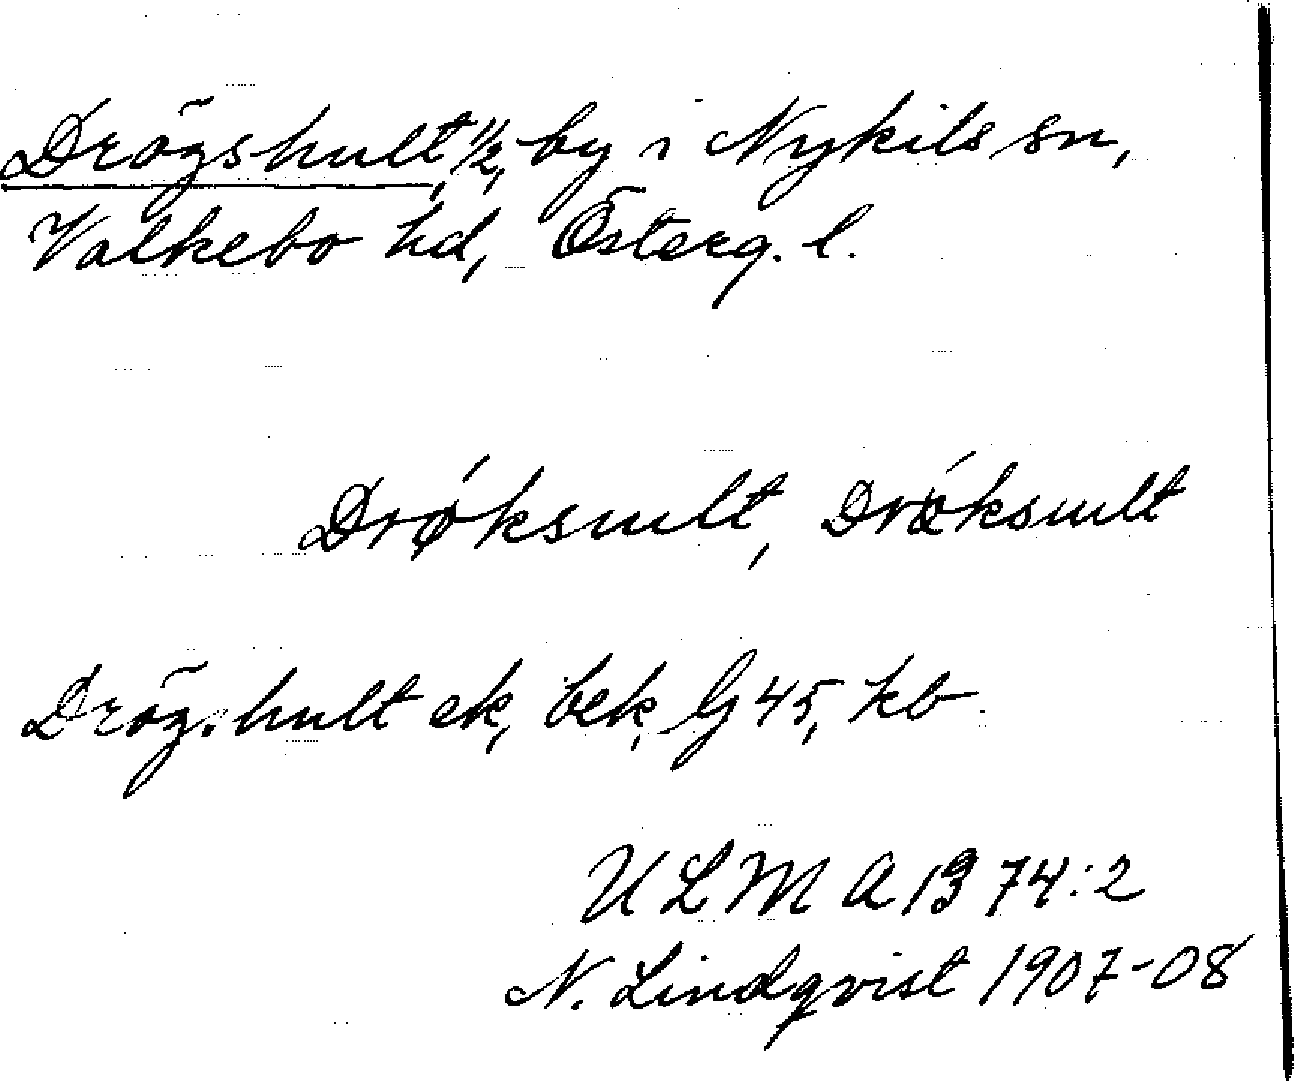 Drögshult, 1/2, by i Nykils sn,
Valkebo hd, Österg. l.
Drǿksult, Drǿksult
Drögshult ek, bek, Gj 45, kb
ULMA 1374:2
N. Lindqvist 1907-08